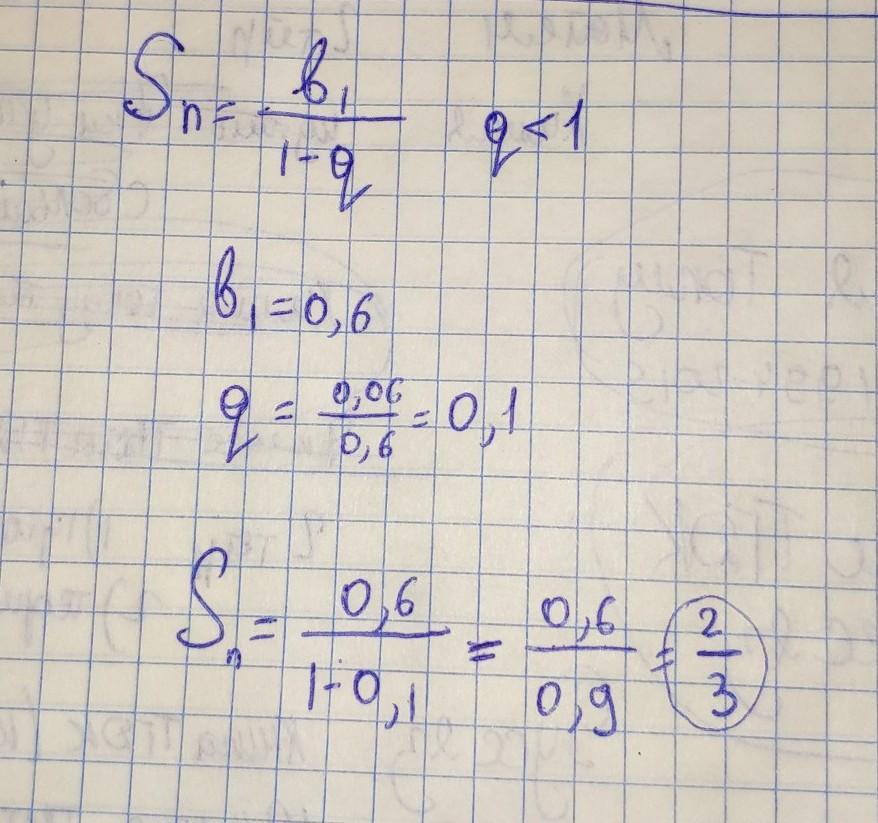 Sn = b1/(1-q) q < 1
b1 = 0,6
q = 0,06/0,6 = 0,1
Sn = 0,6/(1-0,1) = 0,6/0,9 = 2/3